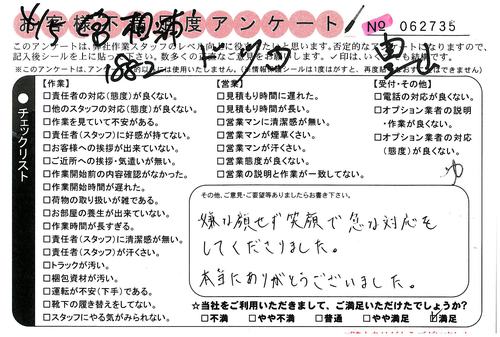 お客様不満足度アンケート No 062735
このアンケートは、弊社作業スタッフのレベル向上に役立てたいと思います。否定的なアンケートになりますので、
記入後シールを上に貼って下さい。数多くのご意見をお願いします。✓印は、いくつでも結構です。
チェックリスト
【作業】
□責任者の対応(態度)が良くない。
□他のスタッフの対応(態度)が良くない。
□作業を見ていて不安がある。
□責任者(スタッフ)に好感が持てない。
□お客様への挨拶が出来ていない。
□ご近所への挨拶・気遣いが無い。
□作業開始前の内容確認がなかった。
□作業開始時間が遅れた。
□荷物の取り扱いが雑である。
□お部屋の養生が出来ていない。
□作業時間が長すぎる。
□責任者(スタッフ)に清潔感が無い。
□責任者(スタッフ)が汗くさい。
□トラックが汚い。
□梱包資材が汚い。
□運転が不安(下手)である。
□靴下の履き替えをしてない。
□スタッフにやる気がみられない。
【営業】
□見積もり時間に遅れた。
□見積もり時間が長い。
□営業マンに清潔感が無い。
□営業マンが煙草くさい。
□営業マンが汗くさい。
□営業態度が良くない。
□営業の説明と作業が一致してない。
【受付・その他】
□電話の対応が良くない。
□オプション業者の説明
・作業が良くない。
□オプション業者の対応
(態度)が良くない。
その他、ご意見・ご要望等ありましたらお書き下さい。
嫌な顔せず笑顔で急な対応を
してくださりました。
本当にありがとうございました。
☆当社をご利用いただきまして、ご満足いただけたでしょうか?
□不満 □やや不満 □普通 □やや満足 ☑満足